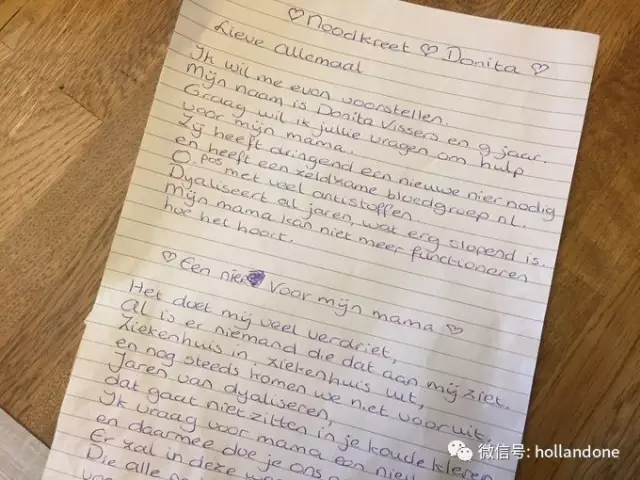 ♡ Noodkreet ♡ Donita ♡
Lieve allemaal
Ik wil me even voorstellen.
Mijn naam is Donita Vissers en 9 jaar.
Graag wil ik jullie vragen om hulp
voor mijn mama.
Zij heeft dringend een nieuwe nier nodig
en heeft een zeldzame bloedgroep nl.
O. pos met veel antistoffen.
Dyaliseert al jaren, wat erg slopend is.
Mijn mama kan niet meer functioneren
hoe het hoort.
♡ Een nier voor mijn mama ♡
Het doet mij veel verdriet,
al is er niemand die dat aan mij ziet.
Ziekenhuis in, ziekenhuis uit,
en nog steeds komen we niet vooruit.
Jaren van dyaliseren,
dat gaat niet zitten in je koude kleren
Ik vraag voor mama een
en daarmee doe je ons
Er zal in deze
Die alle
微信号: hollandone